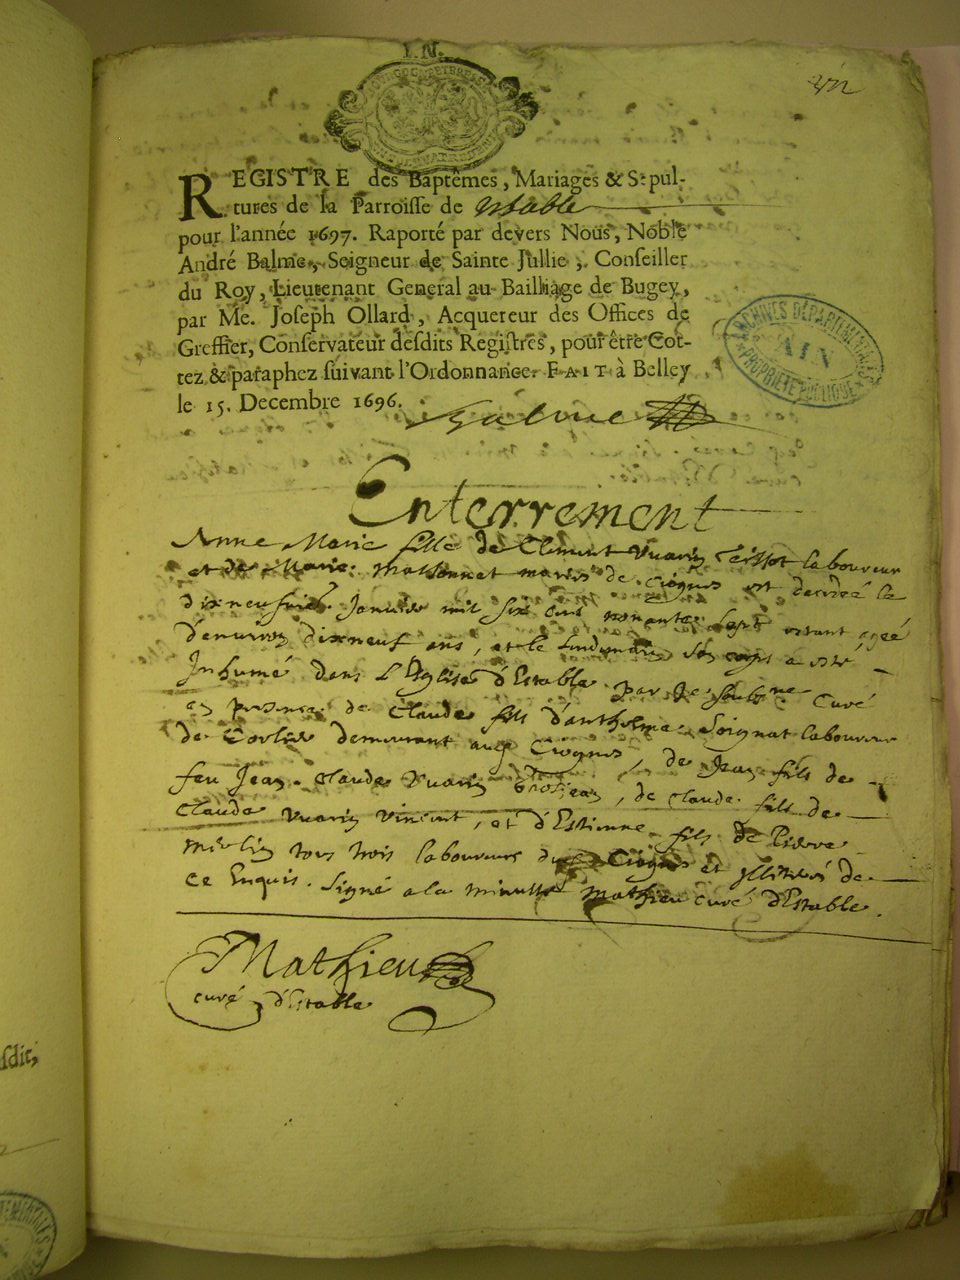 I.N.
REGISTRE des Baptêmes, Mariages & Sepul-
tures de la Parroisse de
pour l'année 1697. Raporté par devers Nous, Noble
André Balme, Seigneur de Sainte Jullie, Conseiller
du Roy, Lieutenant General au Bailliage de Bugey,
par Me. Joseph Ollard, Acquereur des Offices de
Greffier, Conservateur desdits Registres, pour être Cot-
tez & paraphez suivant l'Ordonnance. FAIT à Belley
le 15. Decembre 1696.
Balme
ARCHIVES DÉPARTEMENTALES
AIN
PROPRIÉTÉ PUBLIQUE
Enterrement
Anne Marie fille de Clement Vuarin laboureur
et de Marie mariés de est decedée le
dixneuf Janvier mil six cent nonante sept estant agée
d'environ dixneuf ans, et le lendemain son corps a esté
Inhumé dans L'Eglise d'Estable par Je soubsné Curé
en presence de Claude fils d'anthelme laboureur
de demeurant, de Jean fils de
feu Jean Claude Vuarin, de Claude fils de
Claude Vuarin vincent, et d'Estienne fils de Pierre
tous trois laboureurs et de
ce Enquis. Signé a la minutte Mathieu curé d'Estable.
Mathieu
curé d'Estable
sdit,